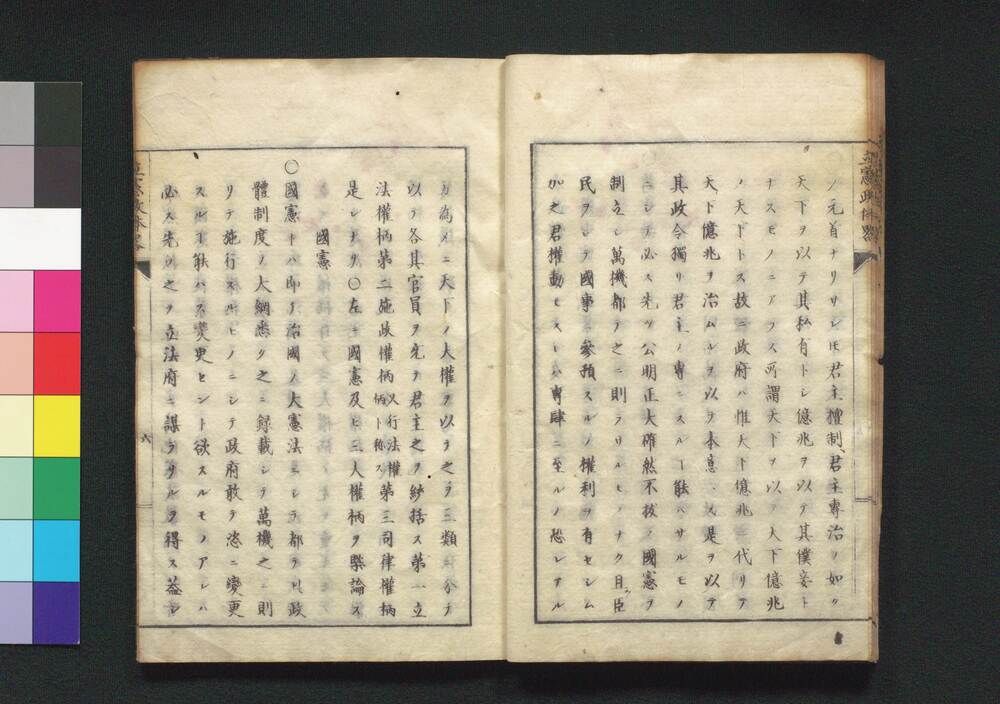 ノ元首ナリト雖モ君主擅制、君主專治ノ如ク
天下ヲ以テ其私有トシ億兆ヲ以テ其僕妾ト
ナスモノニアラス所謂天下ヲ以テ天下億兆
ノ天下トス故ニ政府ハ惟天下億兆ニ代リテ
天下億兆ヲ治ムルヲ以テ本意トス是ヲ以テ
其政令獨リ君主ノ專ニスルヿ能ハサルモノ
ニシテ必ス先ツ公明正大確然不拔ノ國憲ヲ
制立シ萬機都テ之ニ則ラサルモノナク且臣
民ヲシテ國事ニ參預スルノ權利ヲ有セシム
加之君權動モスレハ專肆ニ至ルノ恐レアル
カ為メニ天下ノ大權ヲ以テ之ヲ三類ニ分ナ
以テ各其官員ヲ充テ君主之ヲ統括ス第一立
法權柄第二施政權柄又行法權柄ト称ス第三司律權柄
是レナリ〇左ニ國憲及ヒ三大權柄ヲ槩論ス
國憲
〇國憲トハ即チ治國ノ大憲法ニシテ都テ政
體制度ノ大綱悉ク之ニ録載シテ萬機之ニ則
リテ施行スルモノニシテ政府敢テ恣ニ變更
スルヿ能ハス變更セント欲スルモノアレハ
必ス先ツ之ヲ立法府ニ謀ラサルヲ得ス蓋シ
六